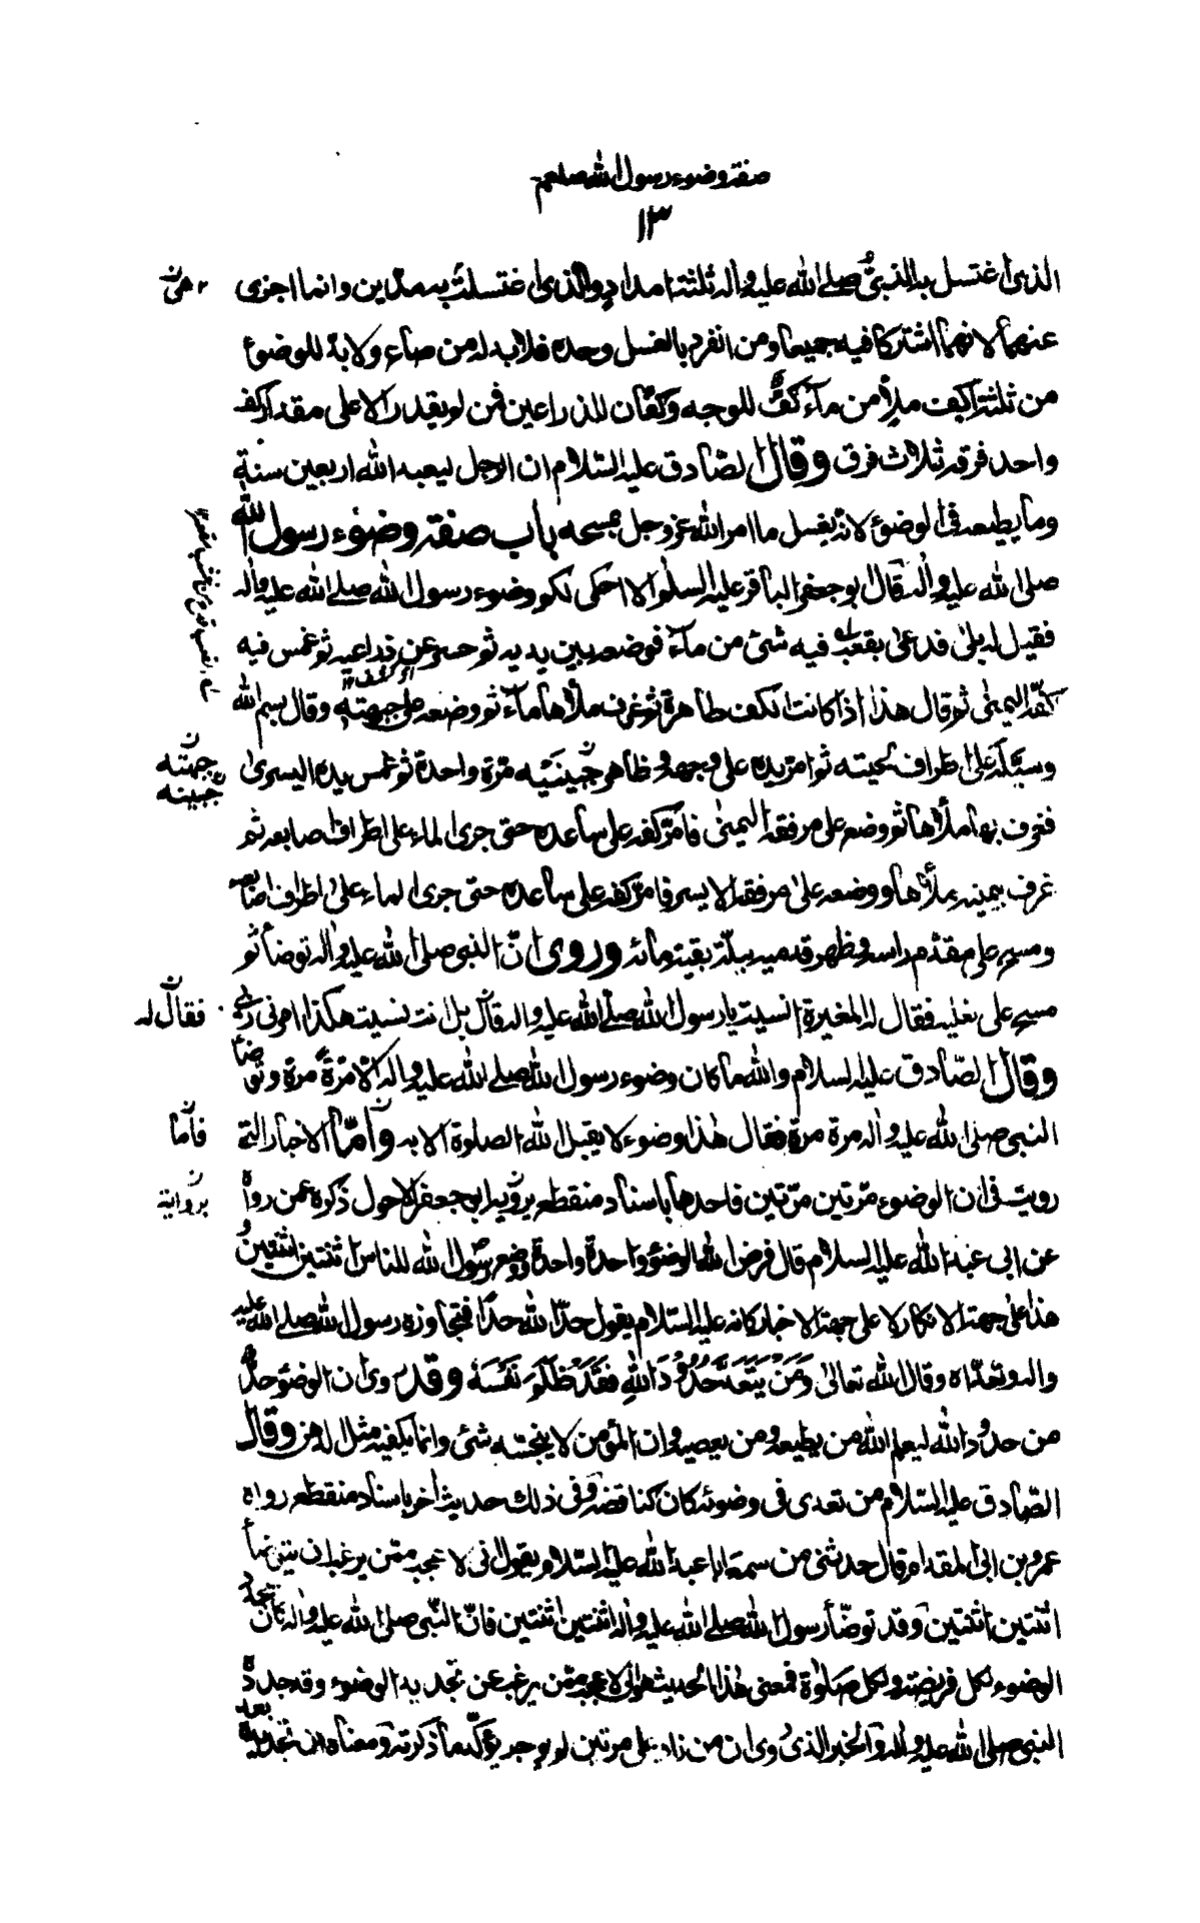 صفة وضوء رسول الله صلعم
١٣
الذي اغتسل به النبي صلى الله عليه وآله ثلثة امداد والذي اغتسلت به مدين وانما اجزى
عنهما لانهما اشتركا فيه جميعا ومن انفرد بالغسل وحده فلا بد له من صاع ولا بد للوضوء
من ثلثة اكف ملأ من ماء كف للوجه وكفان للذراعين فمن لم يقدر الا على مقدار كف
واحد فرقه ثلاث فرق وقال الصادق عليه السلام ان الرجل ليعبد الله اربعين سنة
وما يطيعه في الوضوء لانه يغسل ما امر الله عز وجل بمسحه باب صفة وضوء رسول الله
صلى الله عليه وآله قال ابو جعفر الباقر عليه السلم الا احكى لكم وضوء رسول الله صلى الله عليه وآله
فقيل له بلى فدعى بقعب فيه شئ من ماء فوضعه بين يديه ثم حسر عن ذراعيه ثم غمس فيه
كفه اليمنى ثم قال هذا اذا كانت الكف طاهرة ثم غرف ملأها ماء ثم وضعه على جبهته وقال بسم الله
وسيله على اطراف لحيته ثم امر يده على وجهه وظاهر جبينيه مرة واحدة ثم غمس يده اليسرى
فغرف بها ملأها ثم وضعه على مرفقه اليمنى فامر كفه على ساعده حتى جرى الماء على اطراف اصابعه ثم
غرف بيمينه ملأها ووضعه على مرفقه الايسر فامر كفه على ساعده حتى جرى الماء على اطراف اصابعه
ومسح على مقدم راسه وظهر قدميه ببلة بقية مائه وروى ان النبي صلى الله عليه وآله توضأ ثم
مسح على نعليه فقال له المغيرة انسيت يا رسول الله صلى الله عليه وآله قال بل انت نسيت هكذا امرني ربي
وقال الصادق عليه السلام والله ما كان وضوء رسول الله صلى الله عليه وآله الا مرة مرة وتوضأ
النبي صلى الله عليه وآله مرة مرة فقال هذا وضوء لا يقبل الله الصلوة الا به وأما الاخبار التي
رويت في ان الوضوء مرتين مرتين فاحدها باسناد منقطع يرويه ابو جعفر الاحول ذكره عمن رواه
عن ابى عبد الله عليه السلام قال فرض الله الوضوء واحدة واحدة ووضع رسول الله للناس اثنتين اثنتين
هذا على جهة الانكار لا على جهة الاخبار كانه عليه السلام يقول حد الله حدا فتجاوزه رسول الله صلى الله عليه
وآله وتعداه وقال الله تعالى وَمَنْ يَتَعَدَّ حُدُودَ اللهِ فَقَدْ ظَلَمَ نَفْسَهُ وقد روى ان الوضوء حد
من حدود الله ليعلم الله من يطيعه ومن يعصيه وان المؤمن لا ينجسه شئ وانما يكفيه مثل الدهن وقال
الصادق عليه السلام من تعدى في وضوئه كان كناقضه وفي ذلك حديث اخر باسناد منقطع رواه
عمرو بن ابى المقدام قال حدثني من سمع ابا عبد الله عليه السلام يقول اني لاعجب ممن يرغب ان يتوضأ
اثنتين اثنتين وقد توضأ رسول الله صلى الله عليه وآله اثنتين اثنتين فان النبي صلى الله عليه وآله كان يجدد
الوضوء لكل فريضة ولكل صلوة فمعنى هذا الحديث هو اني لاعجب ممن يرغب عن تجديد الوضوء وقد جدده
النبي صلى الله عليه وآله والخبر الذي روى ان من زاد على مرتين لم يوجر يؤكد ما ذكرته ومعناه ان تجديده بعد
جبهته
جبينه
فقال له
فأما
برواية